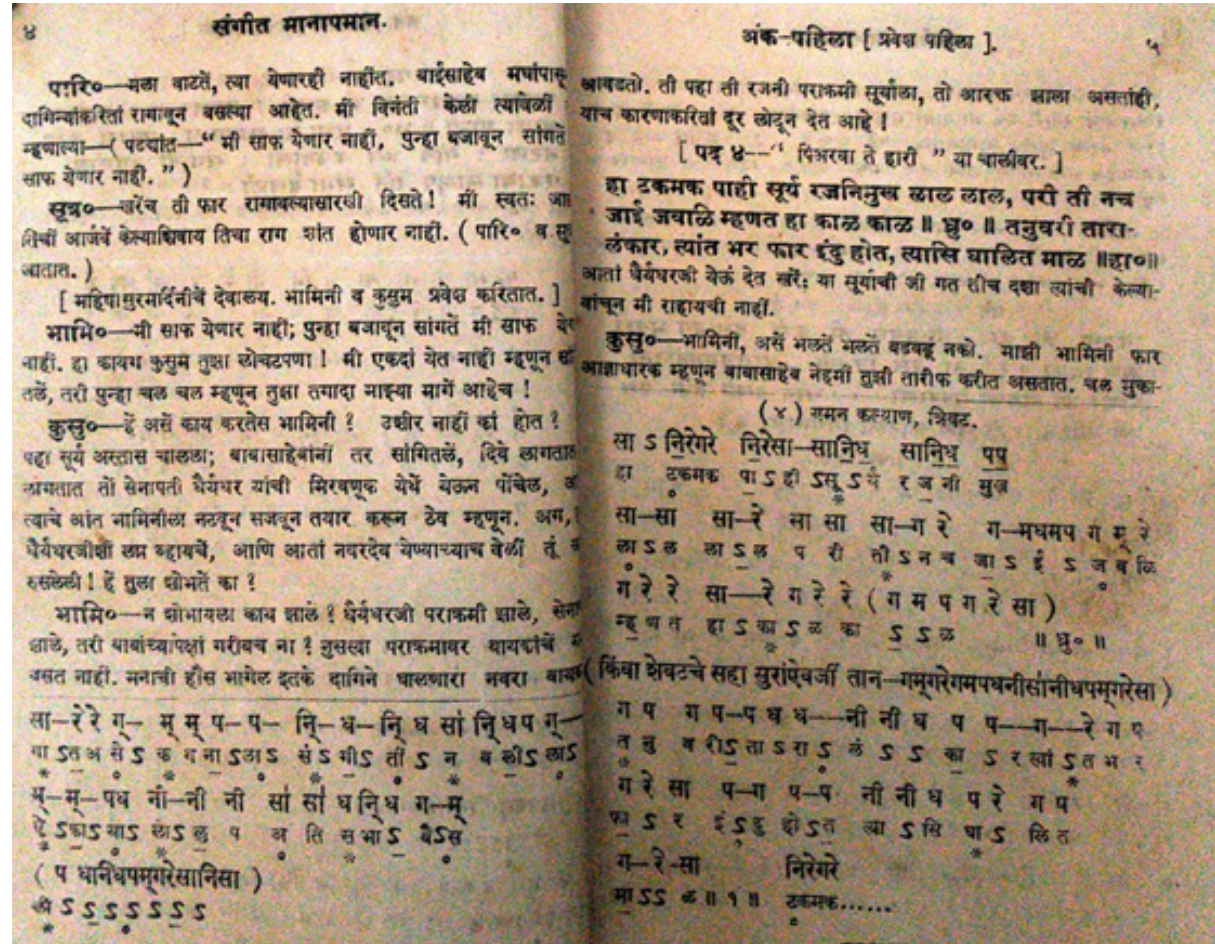 ४
संगीत मानापमान.
पारि०—मला वाटतें, त्या येणारही नाहींत. बाईसाहेब मघांपासू
दागिन्यांकरितां रागावून बसल्या आहेत. मीं विनंती केली त्यावेळीं
म्हणाल्या—( पडद्यांत—“ मी साफ येणार नाहीं, पुन्हा बजावून सांगतें
साफ येणार नाहीं. ” )
सूत्र०—खरेंच ती फार रागावल्यासारखी दिसते ! मीं स्वतः जा
तिचीं आर्जवें केल्याशिवाय तिचा राग शांत होणार नाहीं. ( पारि० व सू
जातात. )
[ महिषासुरमर्दिनीचें देवालय. भामिनी व कुसुम प्रवेश करितात. ]
भामि०—मी साफ येणार नाहीं; पुन्हा बजावून सांगतें मी साफ ये
नाहीं. हा कायग कुसुम तुझा लोचटपणा ! मी एकदां येत नाहीं म्हणून सां
तलें, तरी पुन्हा चल चल म्हणून तुझा तगादा माझ्या मागें आहेच !
कुसु०—हें असें काय करतेस भामिनी ? उशीर नाहीं कां होत ?
पहा सूर्य अस्तास चालला; बाबासाहेबांनीं तर सांगितलें, दिवे लागतात
लागतात तों सेनापती धैर्यधर यांची मिरवणूक येथें येऊन पोंचेल,
त्याचे आंत भामिनीला नटवून सजवून तयार करून ठेव म्हणून. अग,
धैर्यधरजीशीं लग्न व्हायचें, आणि आतां नवरदेव येण्याच्याच वेळीं तूं
रुसलेली ! हें तुला शोभतें का ?
भामि०—न शोभायला काय झालें ? धैर्यधरजी पराक्रमी झाले, सेना
झाले, तरी बाबांच्यापेक्षां गरीबच ना ? नुसत्या पराक्रमावर बायकांचें
बसत नाहीं. मनाची हौस भागेल इतके दागिने घालणारा नवरा बाय
सा—रेरे ग्— म् म् प—प— नि—ध—नि ध सां निधप ग्—
या ऽत अ से ऽ क द ना ऽला ऽ सं ऽ गी ऽ तीं ऽ न व ली ऽ ला ऽ
म्—म्—पध नी—नी नी सां सां ध नि ध ग—म्
( प धानिधपम्गरेसानिसा )
ऽ ऽ ऽ ऽ ऽ ऽ ऽ
अंक-पहिला [ प्रवेश पहिला ].
५
आवडतो. ती पहा ती रजनी पराक्रमी सूर्याला, तो आरक्त झाला असतांही,
याच कारणाकरितां दूर लोटून देत आहे !
[ पद ४--“ पिअरवा ते हारी ” या चालीवर. ]
हा टकमक पाही सूर्य रजनिमुख लाल लाल, परी ती नच
जाई जवळि म्हणत हा काळ काळ ॥ ध्रु० ॥ तनुवरी तारा-
लंकार, त्यांत भर फार इंदु होत, त्यासि घालित माळ ॥हा०॥
आतां धैर्यधरजी येऊं देत खरे; या सूर्याची जी गत तीच दशा त्यांची केल्या-
वांचून मी राहायची नाहीं.
कुसु०—भामिनी, असें भलतें भलतें बडबडूं नको. माझी भामिनी फार
आज्ञाधारक म्हणून बाबासाहेब नेहमीं तुझी तारीफ करीत असतात. चल मुका-
( ४ ) यमन कल्याण, त्रिवट.
सा ऽ निरेगरे निरेसा—सानिध सानिध पप
हा टकमक पा ऽ ही ऽसू ऽ र्य र ज नी मुख
सा—सा सा—रे सा सा सा—ग रे ग—मधमप ग म् रे
ला ऽ ल ला ऽ ल प री ती ऽ न च जा ऽ ई ऽ ज व ळि
ग रे रे सा—रे ग रे रे ( ग म प ग रे सा )
म्ह ण त हा ऽ का ऽ ळ का ऽ ऽ ळ ॥ ध्रु० ॥
( किंवा शेवटचे सहा सुरांऐवजीं तान—गम्गरेगमपधनीसांनीधपम्गरेसा )
ग प ग प—प ध ध—नी नी ध प प—ग—रे ग प
त नु व री ऽ ता ऽ रा ऽ लं ऽ ऽ का ऽ र त्यां ऽ त भ र
ग रे सा प—ग प—प नी नी ध प रे ग प
फा ऽ र इं ऽ दु हो ऽ त त्या ऽ सि घा ऽ लि त
ग—रे-सा निरेगरे
मा ऽऽ ळ ॥ १ ॥ टकमक......